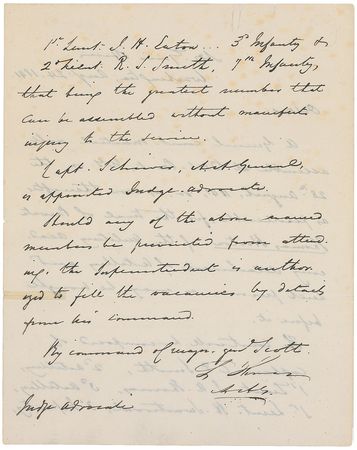 1st Lieut. J. H. Eaton... 3d Infantry &
2d Lieut. R. S. Smith, 7th Infantry,
that being the greatest number that
can be assembled without manifest
injury to the service.
Capt. Schriver, Asst. Adjt. General,
is appointed Judge-Advocate.
Should any of the above named
members be prevented from attend-
ing, the Superintendent is author-
ized to fill the vacancies by details
from his command.
By command of Major Genl Scott.
Judge Advocate